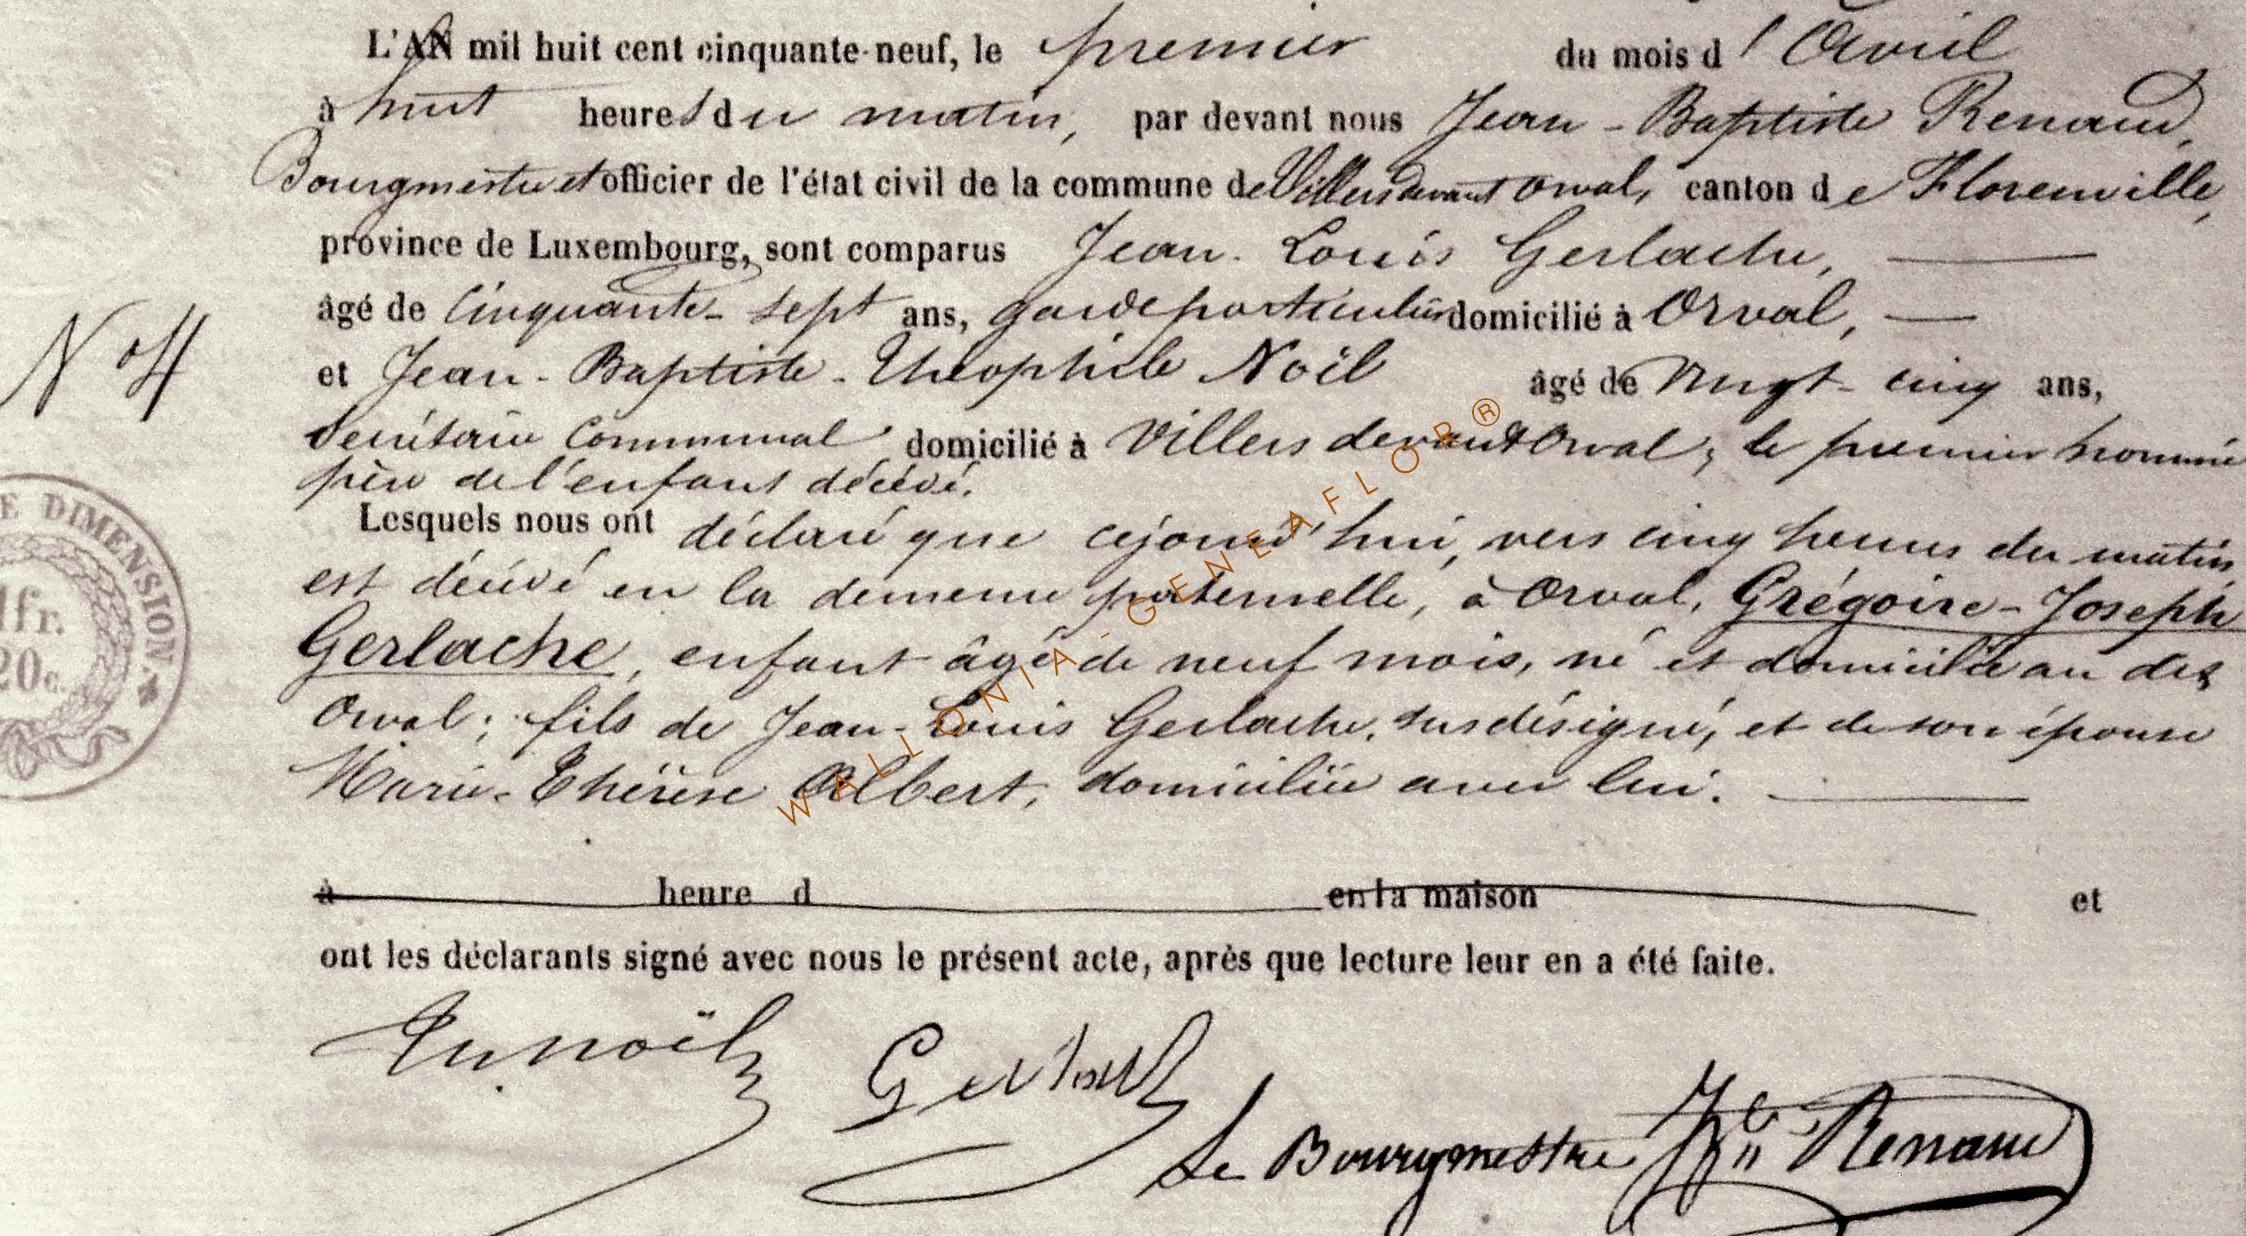 L'AN mil huit cent cinquante-neuf, le premier du mois d'Avril
à huit heures du matin, par devant nous Jean-Baptiste Renaud,
Bourgmestre et officier de l'état civil de la commune de Villers devant Orval, canton de Florenville,
province de Luxembourg, sont comparus Jean-Louis Gerlache,
âgé de cinquante-sept ans, garde particulier domicilié à Orval,
N° 4
et Jean-Baptiste-Théophile Noël âgé de vingt-cinq ans,
secrétaire communal domicilié à Villers devant Orval; le premier nommé
père de l'enfant décédé.
Lesquels nous ont déclaré que cejourd'hui, vers cinq heures du matin,
est décédé en la demeure paternelle, à Orval, Grégoire-Joseph
Gerlache, enfant âgé de neuf mois, né et domicilié au dit
Orval; fils de Jean-Louis Gerlache, susdésigné, et de son épouse
Marie-Thérèse Albert, domiciliée avec lui.
à heure d en la maison et
ont les déclarants signé avec nous le présent acte, après que lecture leur en a été faite.
Th. Noël Gerlache
Le Bourgmestre Jh Bte Renaud
E DIMENSION.
1fr.
20c.
WALLONIA-GENEAFLOR®